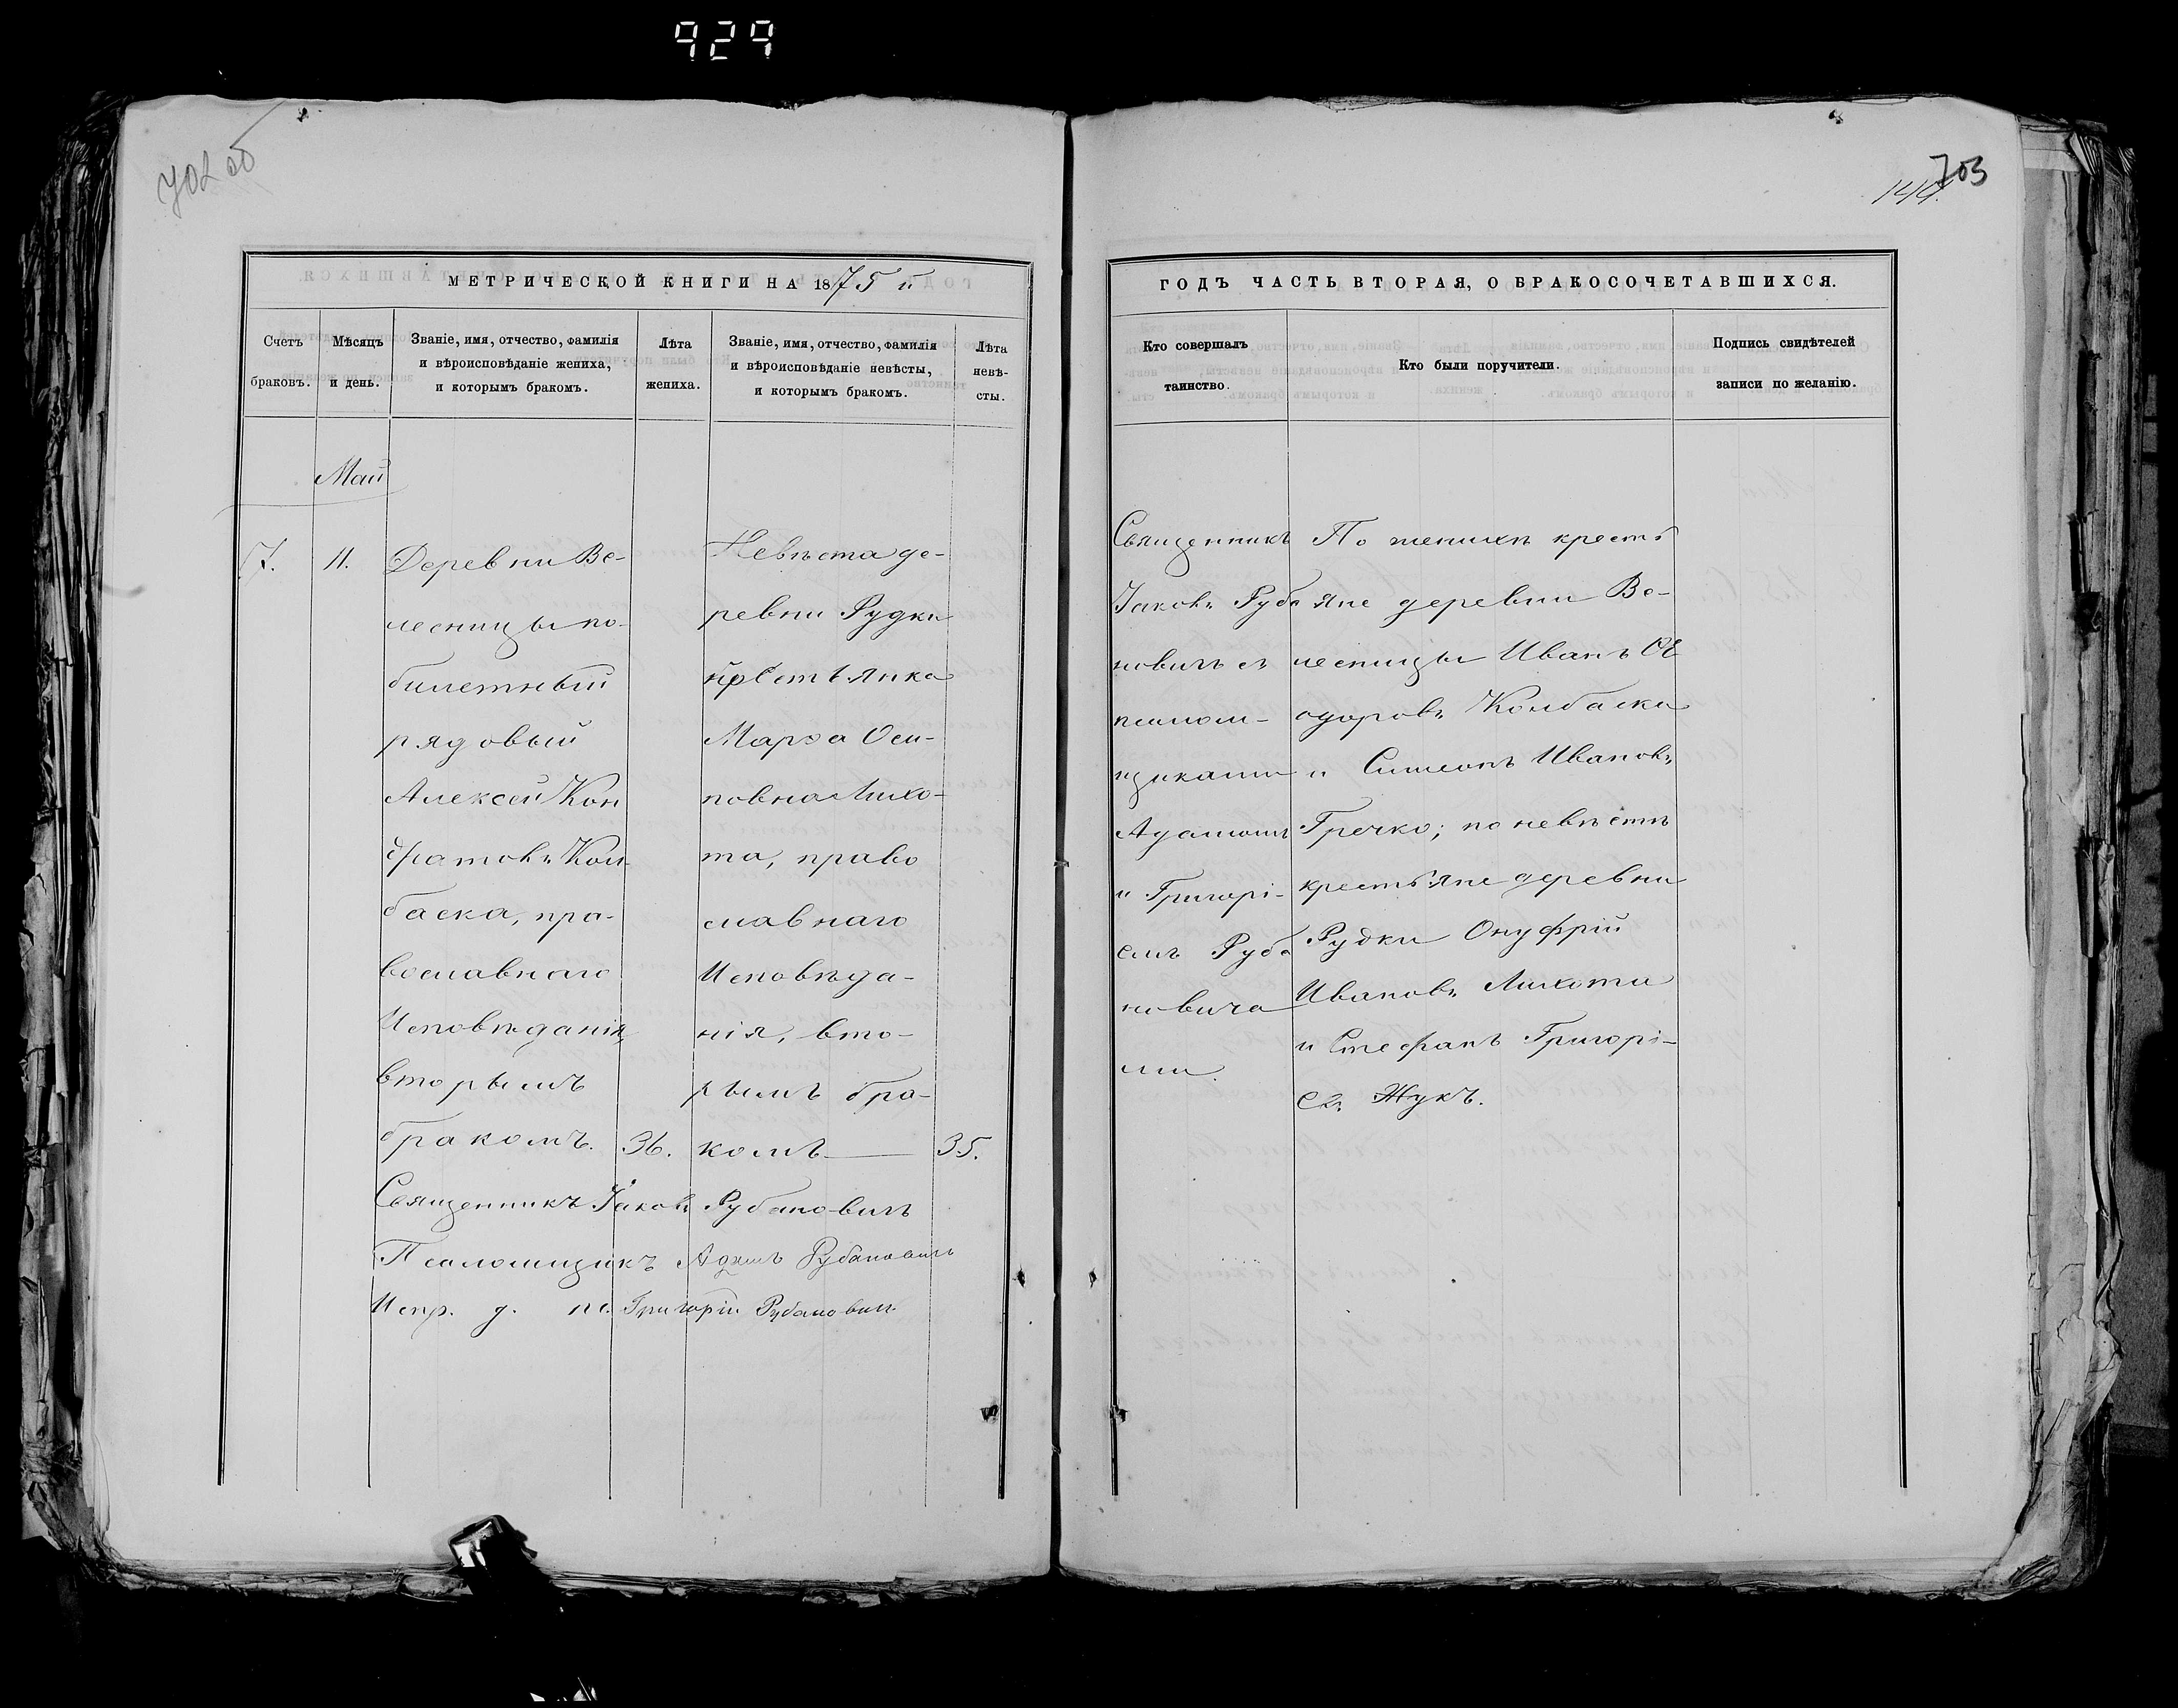 929
702 об
703
МЕТРИЧЕСКОЙ КНИГИ НА 1875 й
Счетъ браковъ.
Мѣсяцъ и день.
Званіе, имя, отчество, фамилія и вѣроисповѣданіе жениха, и которымъ бракомъ.
Лѣта жениха.
Званіе, имя, отчество, фамилія и вѣроисповѣданіе невѣсты, и которымъ бракомъ.
Лѣта невѣ-сты.
Май
7. 11.
Деревни Ве-
лесницы по-
билетный
рядовый
Алексей Кон
дратовъ Кол-
баска, пра-
вославнаго
Исповѣданія,
вторымъ
бракомъ. 36.
Невѣста де-
ревни Рудки
крестьянка
Марѳа Оси-
повна Лихо-
та, право
славнаго
Исповѣда-
нія, вто-
рымъ бра-
комъ 35.
Священникъ Іаковъ Рубановичъ
Псаломщикъ Адамъ Рубановичъ
Испр. д. пс. Григорій Рубановичъ
ГОДЪ ЧАСТЬ ВТОРАЯ, О БРАКОСОЧЕТАВШИХСЯ.
Кто совершалъ таинство.
Кто были поручители.
Подпись свидѣтелей записи по желанію.
Священникъ
Іаковъ Руба
новичъ съ
псалом-
щиками
Адамомъ
и Григорі-
емъ Руба
новича
ми.
По женихѣ кресть
яне деревни Ве-
лесницы Иванъ Ѳе
одоровъ Колбаска
и Симеонъ Ивановъ
Гречко; по невѣстѣ
крестьяне деревни
Рудки Онуфрій
Ивановъ Лихота
и Стефанъ Григорі-
евъ Жукъ.